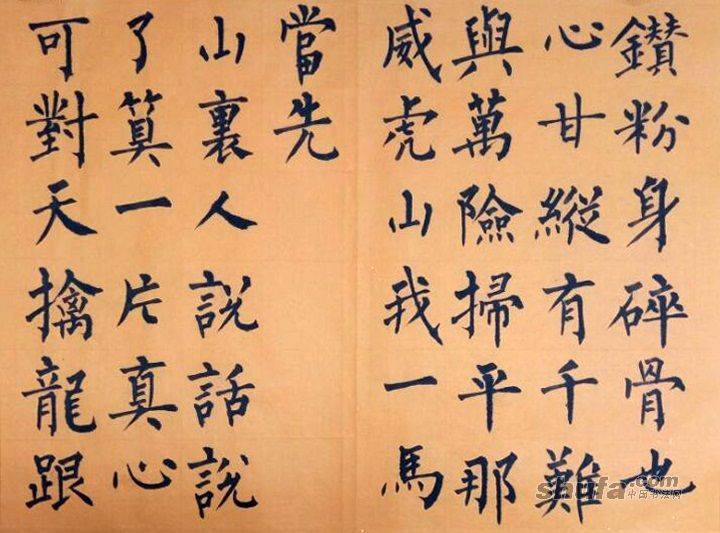 鑽粉身碎骨也
心甘縱有千難
與萬險掃平那
威虎山我一馬
當先
山裏人説話説
了算一片真心
可對天擒龍跟
shufa.com
中国书法网